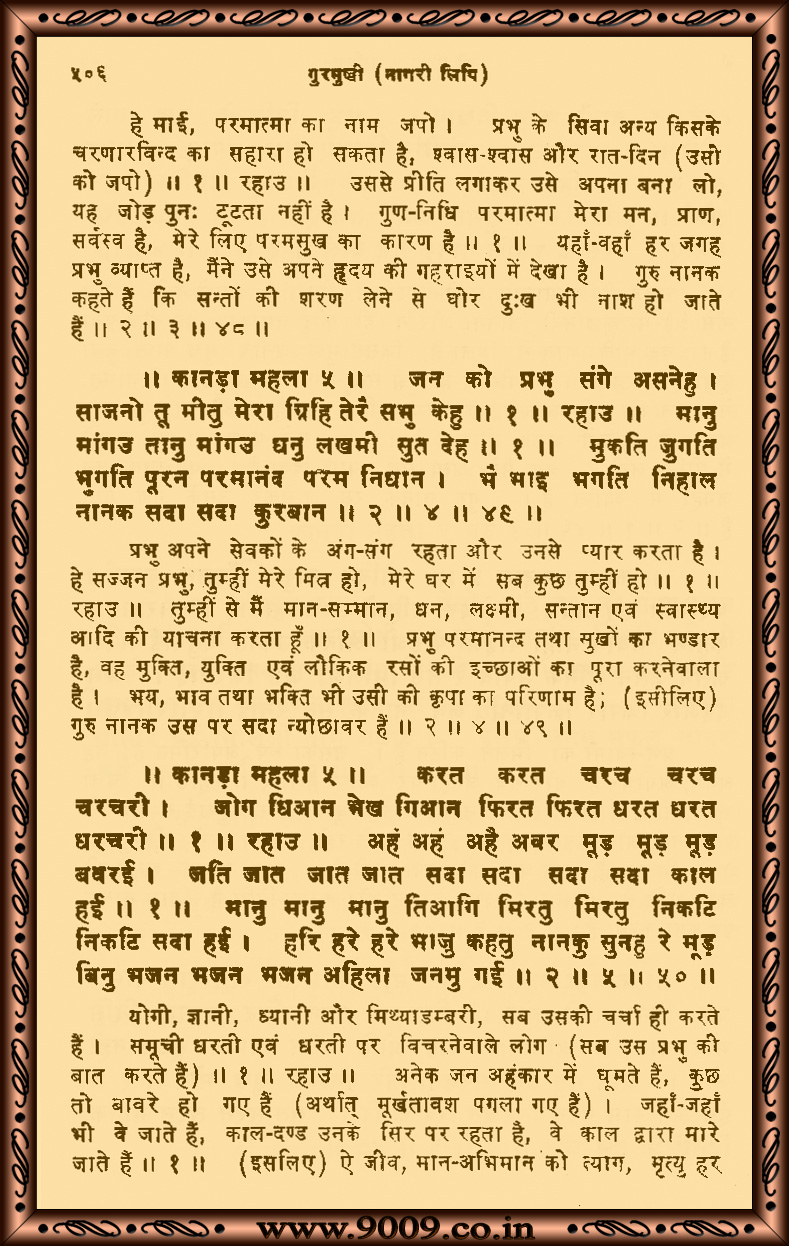 ५०६ गुरमुखी (नागरी लिपि)
हे भाई, परमात्मा का नाम जपो । प्रभु के सिवा अन्य किसके
चरणारविन्द का सहारा हो सकता है, श्वास-श्वास और रात-दिन (उसी
को जपो) ॥ १ ॥ रहाउ ॥ उससे प्रीति लगाकर उसे अपना बना लो,
यह जोड़ पुनः टूटता नहीं है । गुण-निधि परमात्मा मेरा मन, प्राण,
सर्वस्व है, मेरे लिए परमसुख का कारण है ॥ १ ॥ यहाँ-वहाँ हर जगह
प्रभु व्याप्त है, मैंने उसे अपने हृदय की गहराइयों में देखा है । गुरु नानक
कहते हैं कि सन्तों की शरण लेने से घोर दुःख भी नाश हो जाते
हैं ॥ २ ॥ ३ ॥ ४८ ॥
॥ कानड़ा महला ५ ॥ जन को प्रभु संगे असनेहु ।
साजनो तू मीतु मेरा ग्रिहि तेरै सभु केहु ॥ १ ॥ रहाउ ॥ मानु
मांगउ तानु मांगउ धनु लखमी सुत देह ॥ १ ॥ मुकति जुगति
भुगति पूरन परमानंद परम निधान । भै भाइ भगति निहाल
नानक सदा सदा कुरबान ॥ २ ॥ ४ ॥ ४९ ॥
प्रभु अपने सेवकों के अंग-संग रहता और उनसे प्यार करता है ।
हे सज्जन प्रभु, तुम्हीं मेरे मित्र हो, मेरे घर में सब कुछ तुम्हीं हो ॥ १ ॥
रहाउ ॥ तुम्हीं से मैं मान-सम्मान, धन, लक्ष्मी, सन्तान एवं स्वास्थ्य
आदि की याचना करता हूँ ॥ १ ॥ प्रभु परमानन्द तथा सुखों का भण्डार
है, वह मुक्ति, युक्ति एवं लौकिक रसों की इच्छाओं का पूरा करनेवाला
है । भय, भाव तथा भक्ति भी उसी की कृपा का परिणाम है; (इसीलिए)
गुरु नानक उस पर सदा न्योछावर हैं ॥ २ ॥ ४ ॥ ४९ ॥
॥ कानड़ा महला ५ ॥ करत करत चरच चरच
चरचरी । जोग धिआन भेख गिआन फिरत फिरत धरत धरत
धरचरी ॥ १ ॥ रहाउ ॥ अहं अहं अहै अवर मूड़ मूड़ मूड़
बवरई । जति जात जात जात सदा सदा सदा सदा काल
हई ॥ १ ॥ मानु मानु मानु तिआगि मिरतु मिरतु निकटि
निकटि सदा हई । हरि हरे हरे भाजु कहतु नानकु सुनहु रे मूड़
बिनु भजन भजन भजन अहिला जनमु गई ॥ २ ॥ ५ ॥ ५० ॥
योगी, ज्ञानी, ध्यानी और मिथ्याडम्बरी, सब उसकी चर्चा ही करते
हैं । समूची धरती एवं धरती पर विचरनेवाले लोग (सब उस प्रभु की
बात करते हैं) ॥ १ ॥ रहाउ ॥ अनेक जन अहंकार में घूमते हैं, कुछ
तो बावरे हो गए हैं (अर्थात् मूर्खतावश पगला गए हैं) । जहाँ-जहाँ
भी वे जाते हैं, काल-दण्ड उनके सिर पर रहता है, वे काल द्वारा मारे
जाते हैं ॥ १ ॥ (इसलिए) ऐ जीव, मान-अभिमान को त्याग, मृत्यु हर
www.9009.co.in